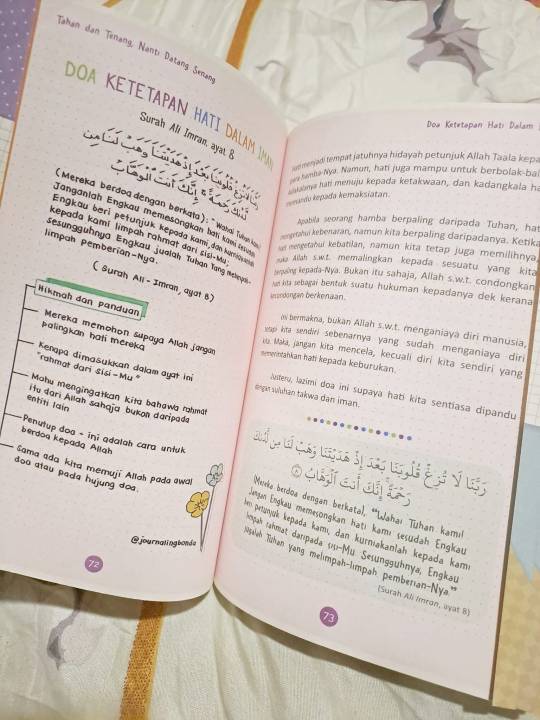 Tahan dan Tenang, Nanti Datang Senang
DOA KETETAPAN HATI DALAM IMAN
Surah Ali Imran, ayat 8
(Mereka berdoa dengan berkata): "Wahai Tuhan kami!
Janganlah Engkau memesongkan hati kami sesudah
Engkau beri petunjuk kepada kami, dan kurniakanlah
kepada kami limpah rahmat dari sisi-Mu;
sesungguhnya Engkau jualah Tuhan Yang melimpah-
limpah Pemberian-Nya.
(Surah Ali-Imran, ayat 8)
Hikmah dan panduan
Mereka memohon supaya Allah jangan
palingkan hati mereka
Kenapa dimasukkan dalam ayat ini
"rahmat dari sisi-Mu"
Mahu mengingatkan kita bahawa rahmat
itu dari Allah sahaja bukan daripada
entiti lain
Penutup doa - ini adalah cara untuk
berdoa kepada Allah
Sama ada kita memuji Allah pada awal
doa atau pada hujung doa.
@journalingbonda
72
Doa Ketetapan Hati Dalam
menjadi tempat jatuhnya hidayah petunjuk Allah Taala kepa
para hamba-Nya. Namun, hati juga mampu untuk berbolak-bal
hati menuju kepada ketakwaan, dan kadangkala ha
kepada kemaksiatan.
Apabila seorang hamba berpaling daripada Tuhan, hat
mengetahui kebenaran, namun kita berpaling daripadanya. Ketika
hati mengetahui kebatilan, namun kita tetap juga memilihnya
maka Allah s.w.t. memalingkan kepada sesuatu yang kita
berpaling kepada-Nya. Bukan itu sahaja, Allah s.w.t. condongkan
hati kita sebagai bentuk suatu hukuman kepadanya dek kerana
kecondongan berkenaan.
Ini bermakna, bukan Allah s.w.t. menganiaya diri manusia,
tetapi kita sendiri sebenarnya yang sudah menganiaya diri
kita. Maka, jangan kita mencela, kecuali diri kita sendiri yang
memerintahkan hati kepada keburukan.
Justeru, lazimi doa ini supaya hati kita sentiasa dipandu
dengan suluhan takwa dan iman.
رَبَّنَا لَا تُزِغْ قُلُوبَنَا بَعْدَ إِذْ هَدَيْتَنَا وَهَبْ لَنَا مِن لَّدُنكَ
رَحْمَةً إِنَّكَ أَنتَ الْوَهَّابُ ۝٨
(Mereka berdoa dengan berkata), "Wahai Tuhan kami!
Jangan Engkau memesongkan hati kami sesudah Engkau
beri petunjuk kepada kami, dan kurniakanlah kepada kami
limpah rahmat daripada sisi-Mu. Sesungguhnya, Engkau
jugalah Tuhan yang melimpah-limpah pemberian-Nya."
(Surah Ali Imran, ayat 8)
73